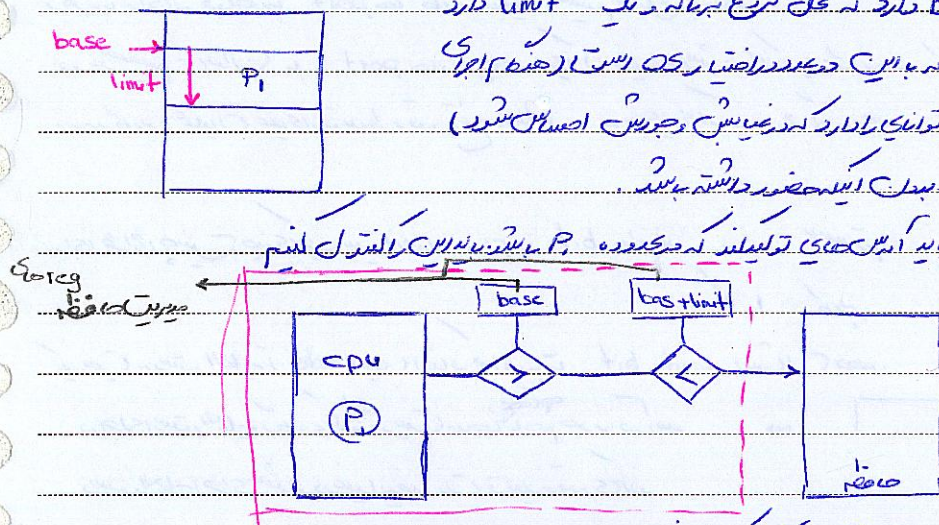 دارد که محل شروع برنامه و یک limit دارد
که با این دو عدد در اختیار OS است (هنگام اجرای
base
limit
P1
توانایی را دارد که در غیابش وجودش احساس شود)
بدون اینکه حضور داشته باشد.
آدرس هایی تولید کند که در محدوده P1 باشد بنابراین کنترل کنیم
reg
مدیریت حافظه
base
bas+limit
cpu
P1
>
<
حافظه